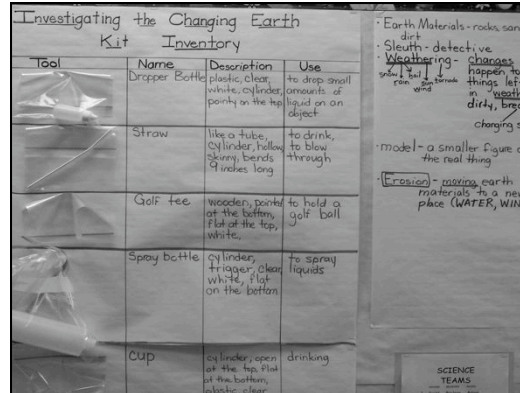 Investigating the Changing Earth
Kit Inventory
Tool
Name
Description
Use
Dropper Bottle
plastic, clear,
white, cylinder,
pointy on the top
to drop small
amounts of
liquid on an
object
Straw
like a tube,
cylinder, hollow,
skinny, bends
9 inches long
to drink,
to blow
through
Golf tee
wooden, pointed
at the bottom,
flat at the top,
white,
to hold a
golf ball
Spray bottle
cylinder,
trigger, clear,
white, flat
on the bottom
to spray
liquids
cup
cylinder, open
at the top, flat
at the bottom,
plastic clear
drinking
· Earth Materials - rocks,
dirt
· Sleuth - detective
· Weathering - changes
snow rain hail wind sun tornado
happen to
things left
in
dirty,
changing
· model - a smaller figure
the real thing
· Erosion - moving earth
materials to a
place (WATER,
SCIENCE
TEAMS